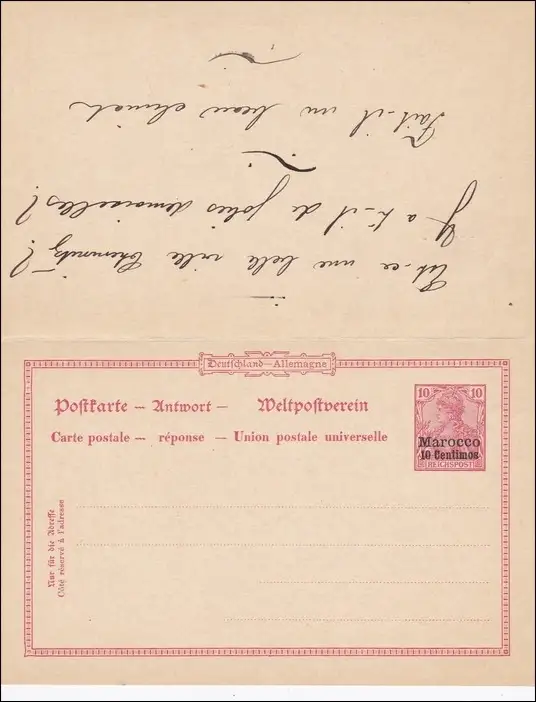 Est-ce une belle ville Chemnitz?
Y a t-il de jolies demoiselles?
Fait-il un beau climat
Deutschland–Allemagne
Postkarte – Antwort – Weltpostverein
Carte postale – réponse – Union postale universelle
10 10
Marocco
10 Centimos
REICHSPOST
Nur für die Adresse
Côté réservé à l'adresse